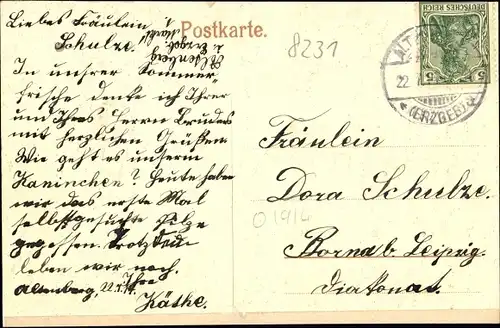 Postkarte.
Liebes Fräulein
Schulze.
In unsrer Sommer-
frische denke ich Ihrer
und Ihres Herrn Bruders
mit herzlichen Grüßen.
Wie geht es unserm
Kaninchen? Heute haben
wir das erste Mal
selbstgesuchte Pilze
gegessen. Trotzdem
leben wir noch.
Ihre
Altenberg, 22.
Käthe.
Altenberg
i. Erzgeb.
8231
DEUTSCHES REICH
5 5
ALT
22
(ERZGEB.)
Fräulein
Dora Schulze.
01914
Borna b. Leipzig.
Diakonat.